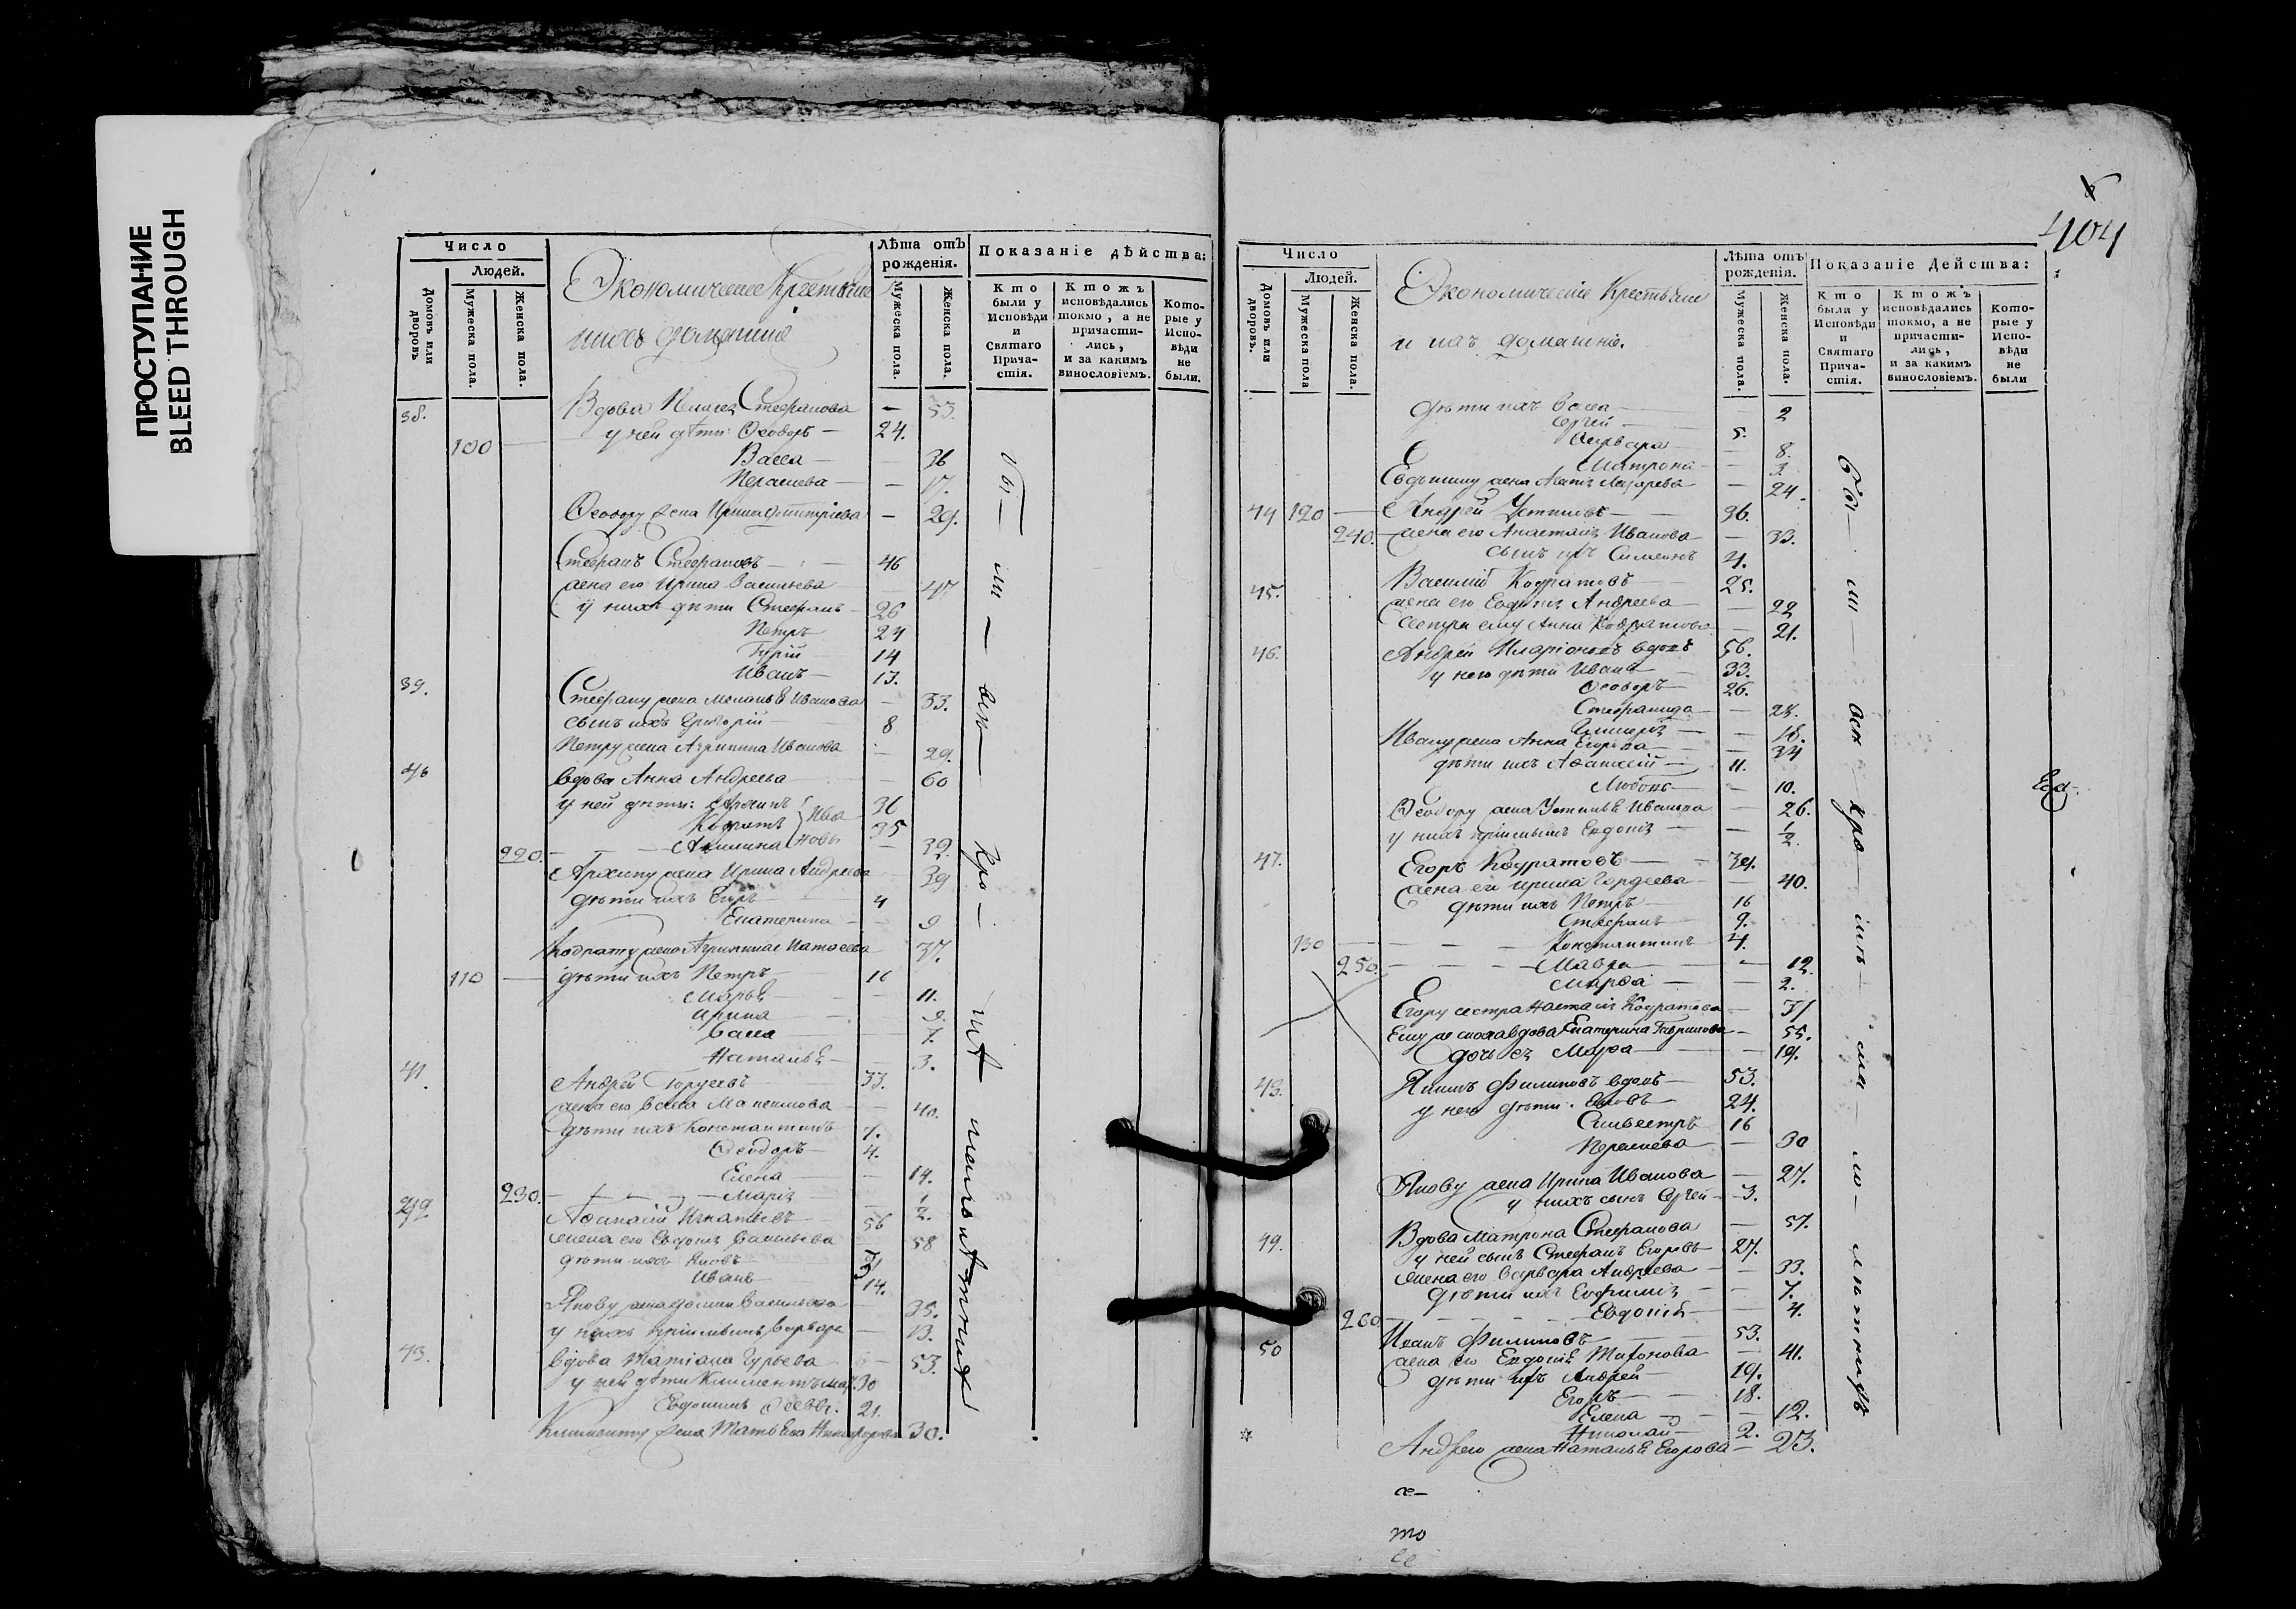 ПРОСТУПАНИЕ
BLEED THROUGH
Число
Людей.
Домовъ или дворовъ
Мужеска пола.
Женска пола.
Экономическіе Крестьяне
ихъ домашніе
Лѣта отъ рожденія.
Мужеска пола.
Женска пола.
Показаніе дѣйства:
Кто были у Исповѣди и Святаго Прича-стія.
Ктожъ исповѣдались токмо, а не причасти-лись, и за какимъ винословіемъ.
Кото-рые у Испо-вѣди не были.
38. Вдова Стефанова — 53.
у ней дѣти Ѳеодоръ — 24.
100 —
Васса — 36
17.
Ѳеодору жена Ирина Дмитріева — 29.
Стефанъ Стефановъ — 46
жена его Ирина Васильева 47
у нихъ дѣти Стефанъ — 26
Петръ 24
Гурій 14
Иванъ — 13.
39. Стефану жена Меланья Иванова — 33.
сынъ ихъ Григорій — 8
Петру жена Агрипина Иванова 29.
вдова Анна Андреева — 60
у ней дѣти: Архипъ 36
Кодратъ 35
Ива новы
220. — Акилина — 32.
Архипу жена Ирина Андреева 39
дѣти ихъ Егоръ — 4
Екатерина — 9
Кодрату жена 37.
110 — дѣти ихъ Петръ 16
Марья — 11.
Ирина 9.
Васса 7.
Наталья — 3.
41. Андрей Гордеевъ 33.
жена его Васса 40.
дѣти ихъ Константинъ 7.
Ѳеодоръ — 4.
Елена — 14.
230. — Марія 1/2.
Аѳанасій Игнатьевъ 56
жена его Евдокія Васильева 58
дѣти ихъ Яковъ
Иванъ 14.
Якову жена Васильева 35.
у нихъ пріимышъ Варвара — 13.
43. вдова Татіана Гурьева 53.
у ней дѣти Климентъ 30
Евдокимъ 21.
Клименту жена 30.
Бы — ли — вси — 
404
Число
Людей.
Домовъ или дворовъ.
Мужеска пола
Женска пола.
Экономическіе Крестьяне
и ихъ домашніе.
Лѣта отъ рожденія.
Мужеска пола.
Женска пола.
Показаніе Действа:
Кто были у Исповѣди и Святаго Прича-стія.
Ктожъ исповѣдались токмо, а не причасти-лись, и за какимъ винословіемъ.
Кото-рые у Испо-вѣди не были
дѣти ихъ Васса — 2
Сергей — 5.
Варвара — 8.
Матрона — 3.
Евдокиму жена Лазарева — 24.
44 120 — Андрей 36.
240. — жена его Анастасія Иванова — 33.
сынъ ихъ Симеонъ 4.
45. Василій Кодратовъ 25.
жена его Евдокія Андреева — 22
сестра ему Анна Кодратова — 21.
46. Андрей Иларіоновъ вдовъ 56.
у него дѣти Иванъ — 33.
Ѳеодоръ — 26.
Стефанида — 28.
18.
Ивану жена Анна Егорова — 34
дѣти ихъ Аѳанасій — 11.
Любовь — 10.
Ѳеодору жена Устинья Иванова — 26.
у нихъ пріимышъ Евдокія — 1/2.
47. Егоръ Кодратовъ — 39.
жена его Ирина Гордеева — 40.
дѣти ихъ Петръ — 16
Стефанъ 9.
130 — Константинъ 4.
250. — Мавра — 12.
Марѳа — 2.
Егору сестра Настасія Кодратова —
вдова Екатерина Гаврилова — 55.
дочь ея Марѳа — 19.
Якимъ Филиповъ вдовъ — 53.
у него дѣти: Яковъ — 24.
Сильвестръ 16
30
Якову жена Ирина Иванова — 27.
у нихъ сынъ Сергей — 3.
49. Вдова Матрона Стефанова — 57.
у ней сынъ Стефанъ Егоровъ — 27.
жена его Варвара Андреева — 33.
дѣти ихъ Евфимія — 7.
260. — Евдокія — 4.
50 Иванъ Филиповъ — 53.
жена его Евдокія Тихонова — 41.
дѣти ихъ Андрей — 19.
Егоръ — 18.
Елена — 12.
Николай — 2.
Андрею жена Наталья Егорова — 23.
Бы — ли — вси — кро — мѣ —
то